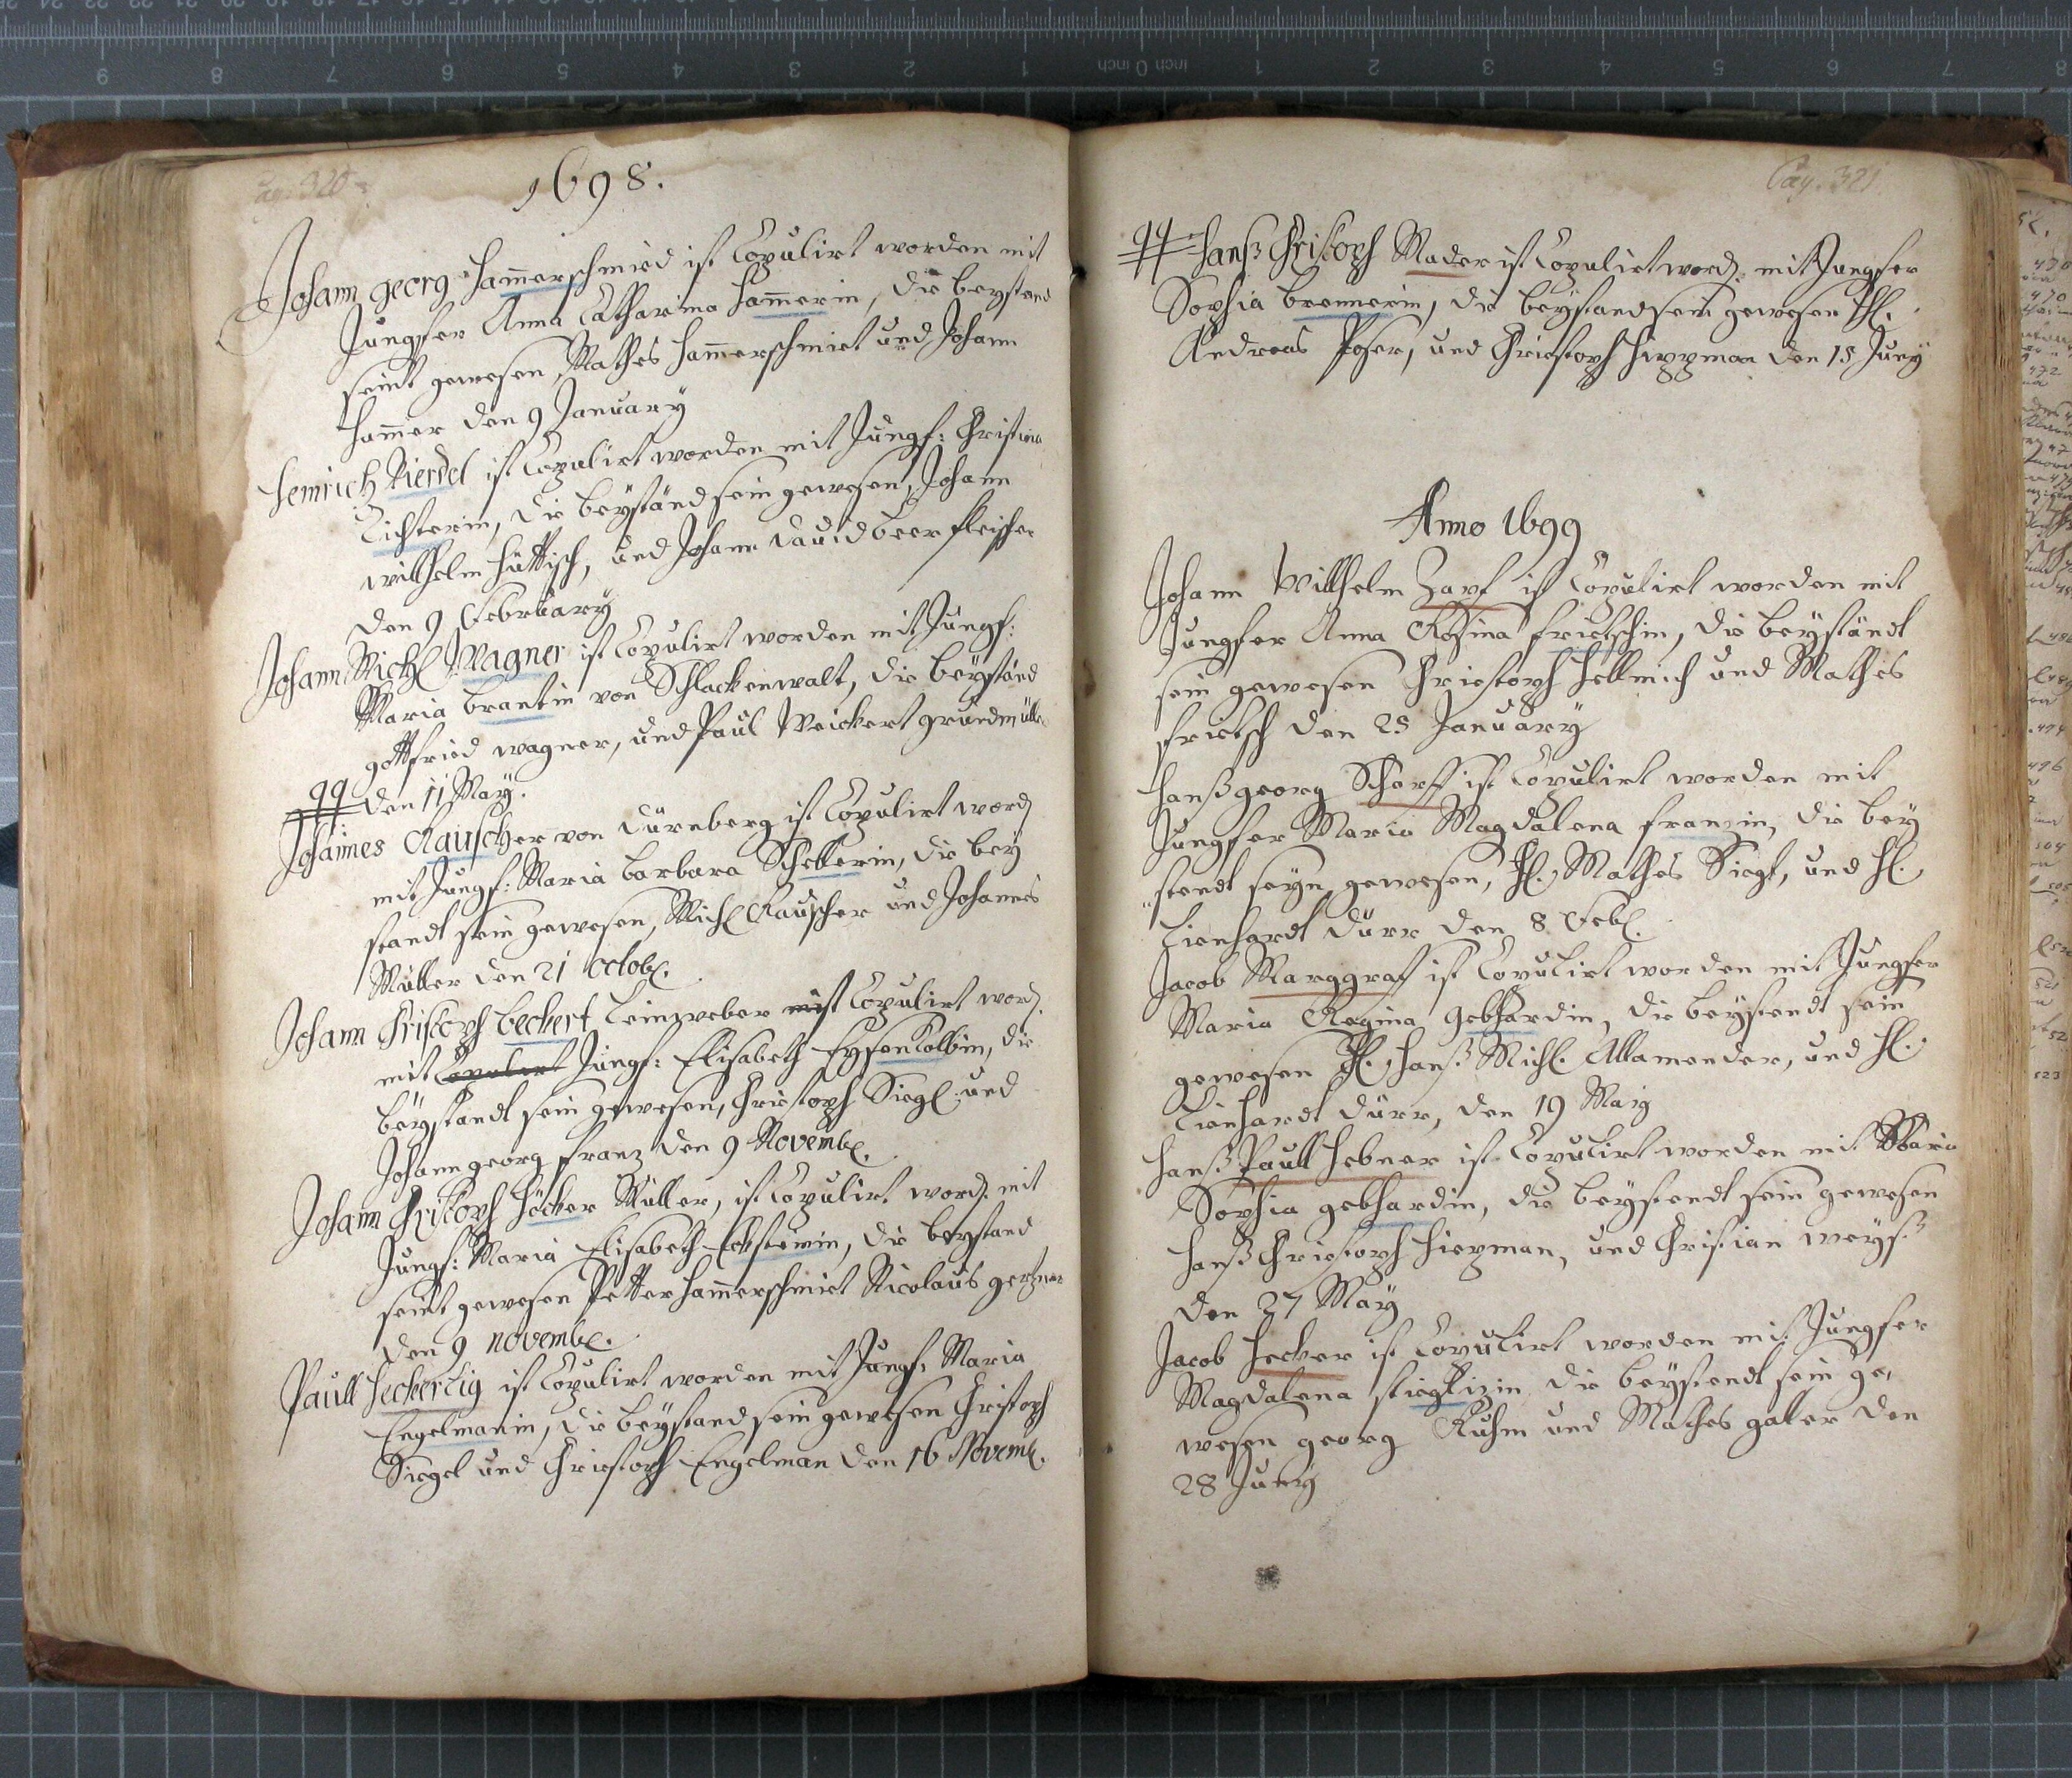 Pag. 320
1698.
Johann georg Ham̄erschmied ist Copulirt worden mit
Jungfer Anna Catharina Ham̄erin, die beystend
seint gewesen Mathes Ham̄erschmiet und Johann
Ham̄er den 9 January
Heinrich Riedel ist Copulirt worden mit Jungf: Christina
Richterin, die beyständ sein gewesen, Johann
willhelm Hüttisch, und Johann David beer fleischer
den 9 February
Johann Michl Wagner ist Copulirt worden mit Jungf:
Maria brantin von Schlackenwalt, die beyständ
gottfried wagner, und Paul Weickert grundmüller
99 den 11 May.
Johannes Rauscher von Dürnberg ist Copulirt word
mit Jungf: Maria barbara Schetterin, die bey
standt sein gewesen, Michl Rauscher und Johannes
Müller den 21 Octobr.
Johann Christoph beckert Leinweber ist Copulirt word.
mit Copulirt Jungf: Elisabeth Eysenkolbin, die
beystandt sein gewesen, Christoph Siegl und
Johann georg franz den 9 Novembr.
Johann Christoph Höcker Müller, ist Copulirt word. mit
Jungf: Maria Elisabeth, die beystand
seint gewesen Petter Ham̄erschmiet Nicolaus
den 9 novembr.
Paull Heckerlig ist Copulirt worden mit Jungf: Maria
Engelmanin, die beystand sein gewesen Christoph
Siegel und Christoph Engelman den 16 Novembr.
Pag. 321
99 Hanß Christoph Mader ist Copulirt word. mit Jungfer
Sophia brennerin, die beystand sein gewesen Hl.
Andreas Poser, und Christoph Hippman den 15 Juny
Anno 1699
Johann Willhelm Zapf ist Copulirt worden mit
Jungfer Anna Rosina frietschin, die beyständt
sein gewesen Christoph Hellmich und Mathes
frietsch den 25 January
Hanß georg Scharff ist Copulirt worden mit
Jungfer Maria Magdalena franzin, die bey
stendt seyn gewesen, Hl. Mathes Siegl, und Hl.
Lienhardt Dürr den 8 Febr.
Jacob Marggraf ist Copulirt worden mit Jungfer
Maria Regina gebhardin, die beystendt sein
gewesen Hl. Hanß Michl. Allamender, und Hl.
Lienhardt Dürr, den 19 May
Hanß Paull Hebner ist Copulirt worden mit Maria
Sophia gebhardin, die beystendt sein gewesen
Hanß Christoph Hiepman, und Christian weyß
den 27 May
Jacob Hecker ist Copulirt worden mit Jungfer
Magdalena stieglizin die beystendt sein ge,,
wesen georg Kuhm und Mathes galer den
28 Juny